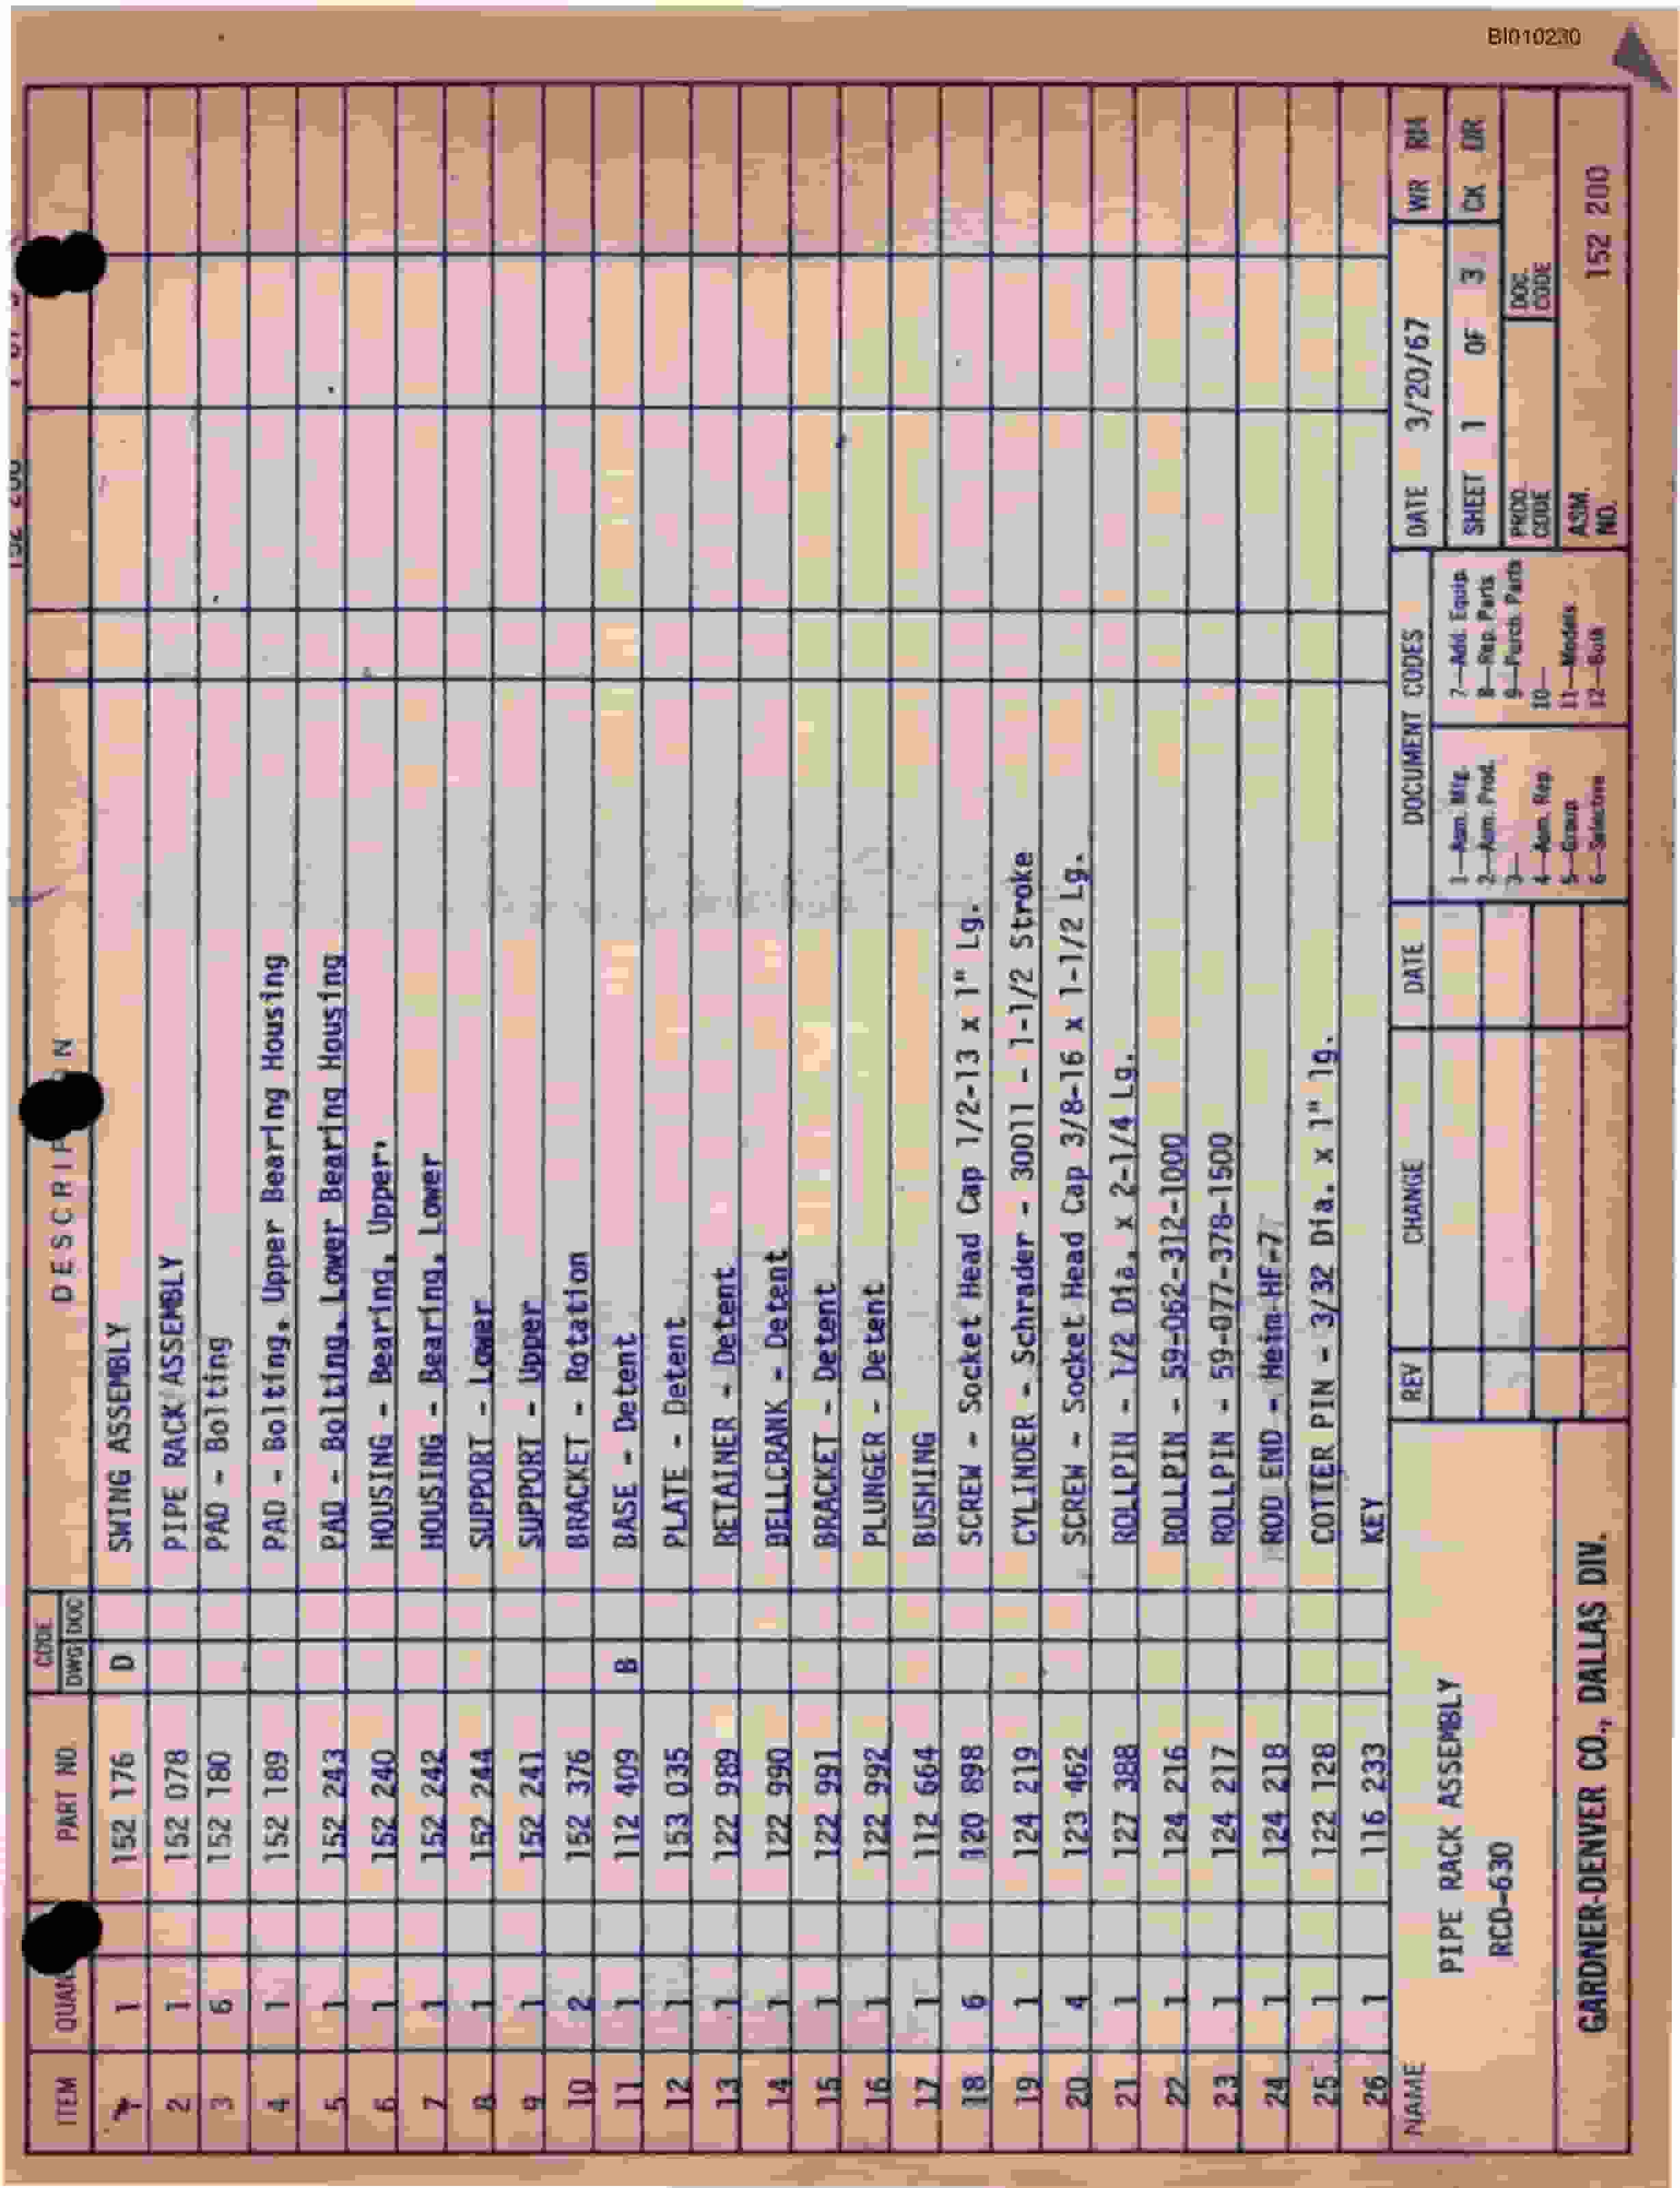 BI010230
ITEM QUAN PART NO. CODE DWG DOC DESCRIP N
1 152 176 D SWING ASSEMBLY
2 1 152 078 PIPE RACK ASSEMBLY
3 6 152 180 PAD - Bolting
4 1 152 189 PAD - Bolting, Upper Bearing Housing
5 1 152 243 PAD - Bolting, Lower Bearing Housing
6 1 152 240 HOUSING - Bearing, Upper,
7 1 152 242 HOUSING - Bearing, Lower
8 1 152 244 SUPPORT - Lower
9 1 152 241 SUPPORT - Upper
10 2 152 376 BRACKET - Rotation
11 1 112 409 B BASE - Detent
12 1 153 035 PLATE - Detent
13 1 122 989 RETAINER - Detent
14 1 122 990 BELLCRANK - Detent
15 1 122 991 BRACKET - Detent
16 1 122 992 PLUNGER - Detent
17 1 112 664 BUSHING
18 6 120 898 SCREW - Socket Head Cap 1/2-13 x 1" Lg.
19 1 124 219 CYLINDER - Schrader - 30011 - 1-1/2 Stroke
20 4 123 462 SCREW - Socket Head Cap 3/8-16 x 1-1/2 Lg.
21 1 127 388 ROLLPIN - 1/2 Dia. x 2-1/4 Lg.
22 1 124 216 ROLLPIN - 59-062-312-1000
23 1 124 217 ROLLPIN - 59-077-378-1500
24 1 124 218 ROD END - Hein-HF-7
25 1 122 128 COTTER PIN - 3/32 Dia. x 1" lg.
26 1 116 233 KEY
NAME
PIPE RACK ASSEMBLY
RCD-630
GARDNER-DENVER CO., DALLAS DIV.
REV CHANGE DATE
DOCUMENT CODES
1—Asm. Mfg.
2—Asm. Prod.
3—
4—Asm. Rep.
5—Group
6—Selective
7—Add. Equip.
8—Rep. Parts
9—Purch. Parts
10—
11—Models
12—Both
DATE 3/20/67 WR RM
SHEET 1 OF 3 CK DR
PROD. CODE DOC. CODE
ASM. NO. 152 200